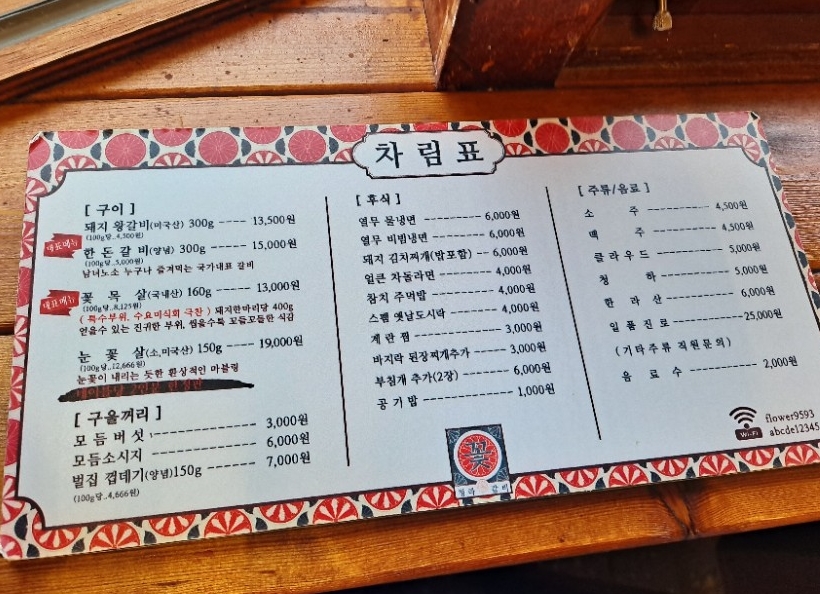 차림표
[ 구이 ]
돼지 왕갈비(미국산) 300g ---- 13,500원
(100g당..4,500원)
대표메뉴
한돈갈비(양념) 300g ------ 15,000원
(100g당..5,000원)
남녀노소 누구나 즐겨먹는 국가대표 갈비
대표메뉴
꽃 목 살(국내산) 160g ------ 13,000원
(100g당..8,125원)
( 특수부위, 수요미식회 극찬 ) 돼지한마리당 400g
얻을수 있는 진귀한 부위, 씹을수록 꼬들꼬들한 식감
눈 꽃 살(소,미국산) 150g ---- 19,000원
(100g당..12,666원)
눈꽃이 내리는 듯한 환상적인 마블링
[ 구울꺼리 ]
모 듬 버 섯 ------------ 3,000원
모듬소시지 ------------ 6,000원
벌집 껍데기(양념)150g ------- 7,000원
(100g당..4,666원)
[ 후식 ]
열무 물냉면 --------- 6,000원
열무 비빔냉면 -------- 6,000원
돼지 김치찌개(밥포함) -- 6,000원
얼큰 차돌라면 -------- 4,000원
참치 주먹밥 --------- 4,000원
스팸 옛날도시락 ------ 4,000원
계 란 찜 ----------- 3,000원
바지락 된장찌개추가 ---- 3,000원
부침개 추가(2장) ------ 6,000원
공 기 밥 ----------- 1,000원
꽃
갈비
[ 주류/음료 ]
소 주 ---------- 4,500원
맥 주 ---------- 4,500원
클라우드 ---------- 5,000원
청 하 ---------- 5,000원
한 라 산 ---------- 6,000원
일품진로 ----------25,000원
(기타주류 직원문의)
음 료 수 ---------- 2,000원
Wi-Fi
flower9593
abcde12345